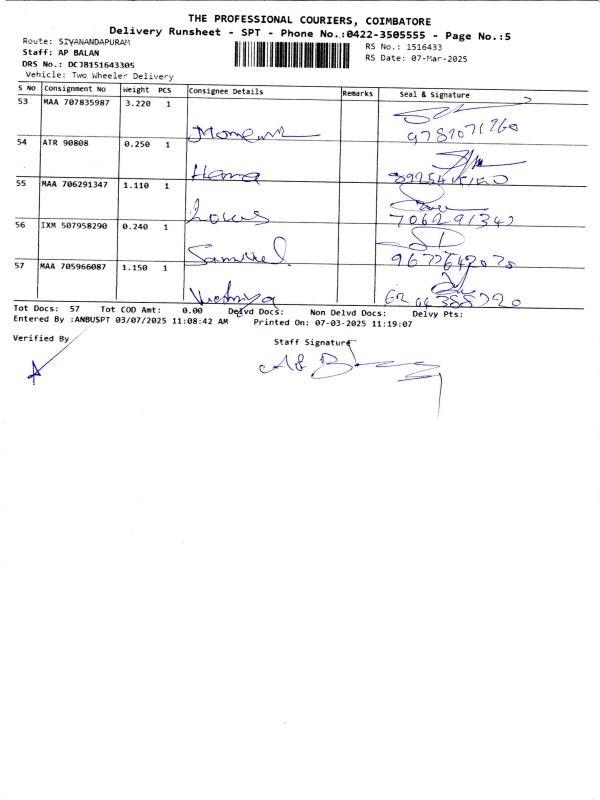 THE PROFESSIONAL COURIERS, COIMBATORE
Delivery Runsheet - SPT - Phone No.:0422-3505555 - Page No.:5
Route: SIVANANDAPURAM
RS No.: 1516433
Staff: AP BALAN
RS Date: 07-Mar-2025
DRS No.: DCJB151643305
Vehicle: Two Wheeler Delivery
S No Consignment No Weight PCS Consignee Details Remarks Seal & Signature
53 MAA 707835987 3.220 1
54 ATR 90808 0.250 1
Hema
55 MAA 706291347 1.110 1
56 IXM 507958290 0.240 1
Samuel
57 MAA 705966087 1.150 1
Tot Docs: 57 Tot COD Amt: 0.00 Delvd Docs: Non Delvd Docs: Delvy Pts:
Entered By :ANBUSPT 03/07/2025 11:08:42 AM Printed On: 07-03-2025 11:19:07
Verified By
Staff Signature